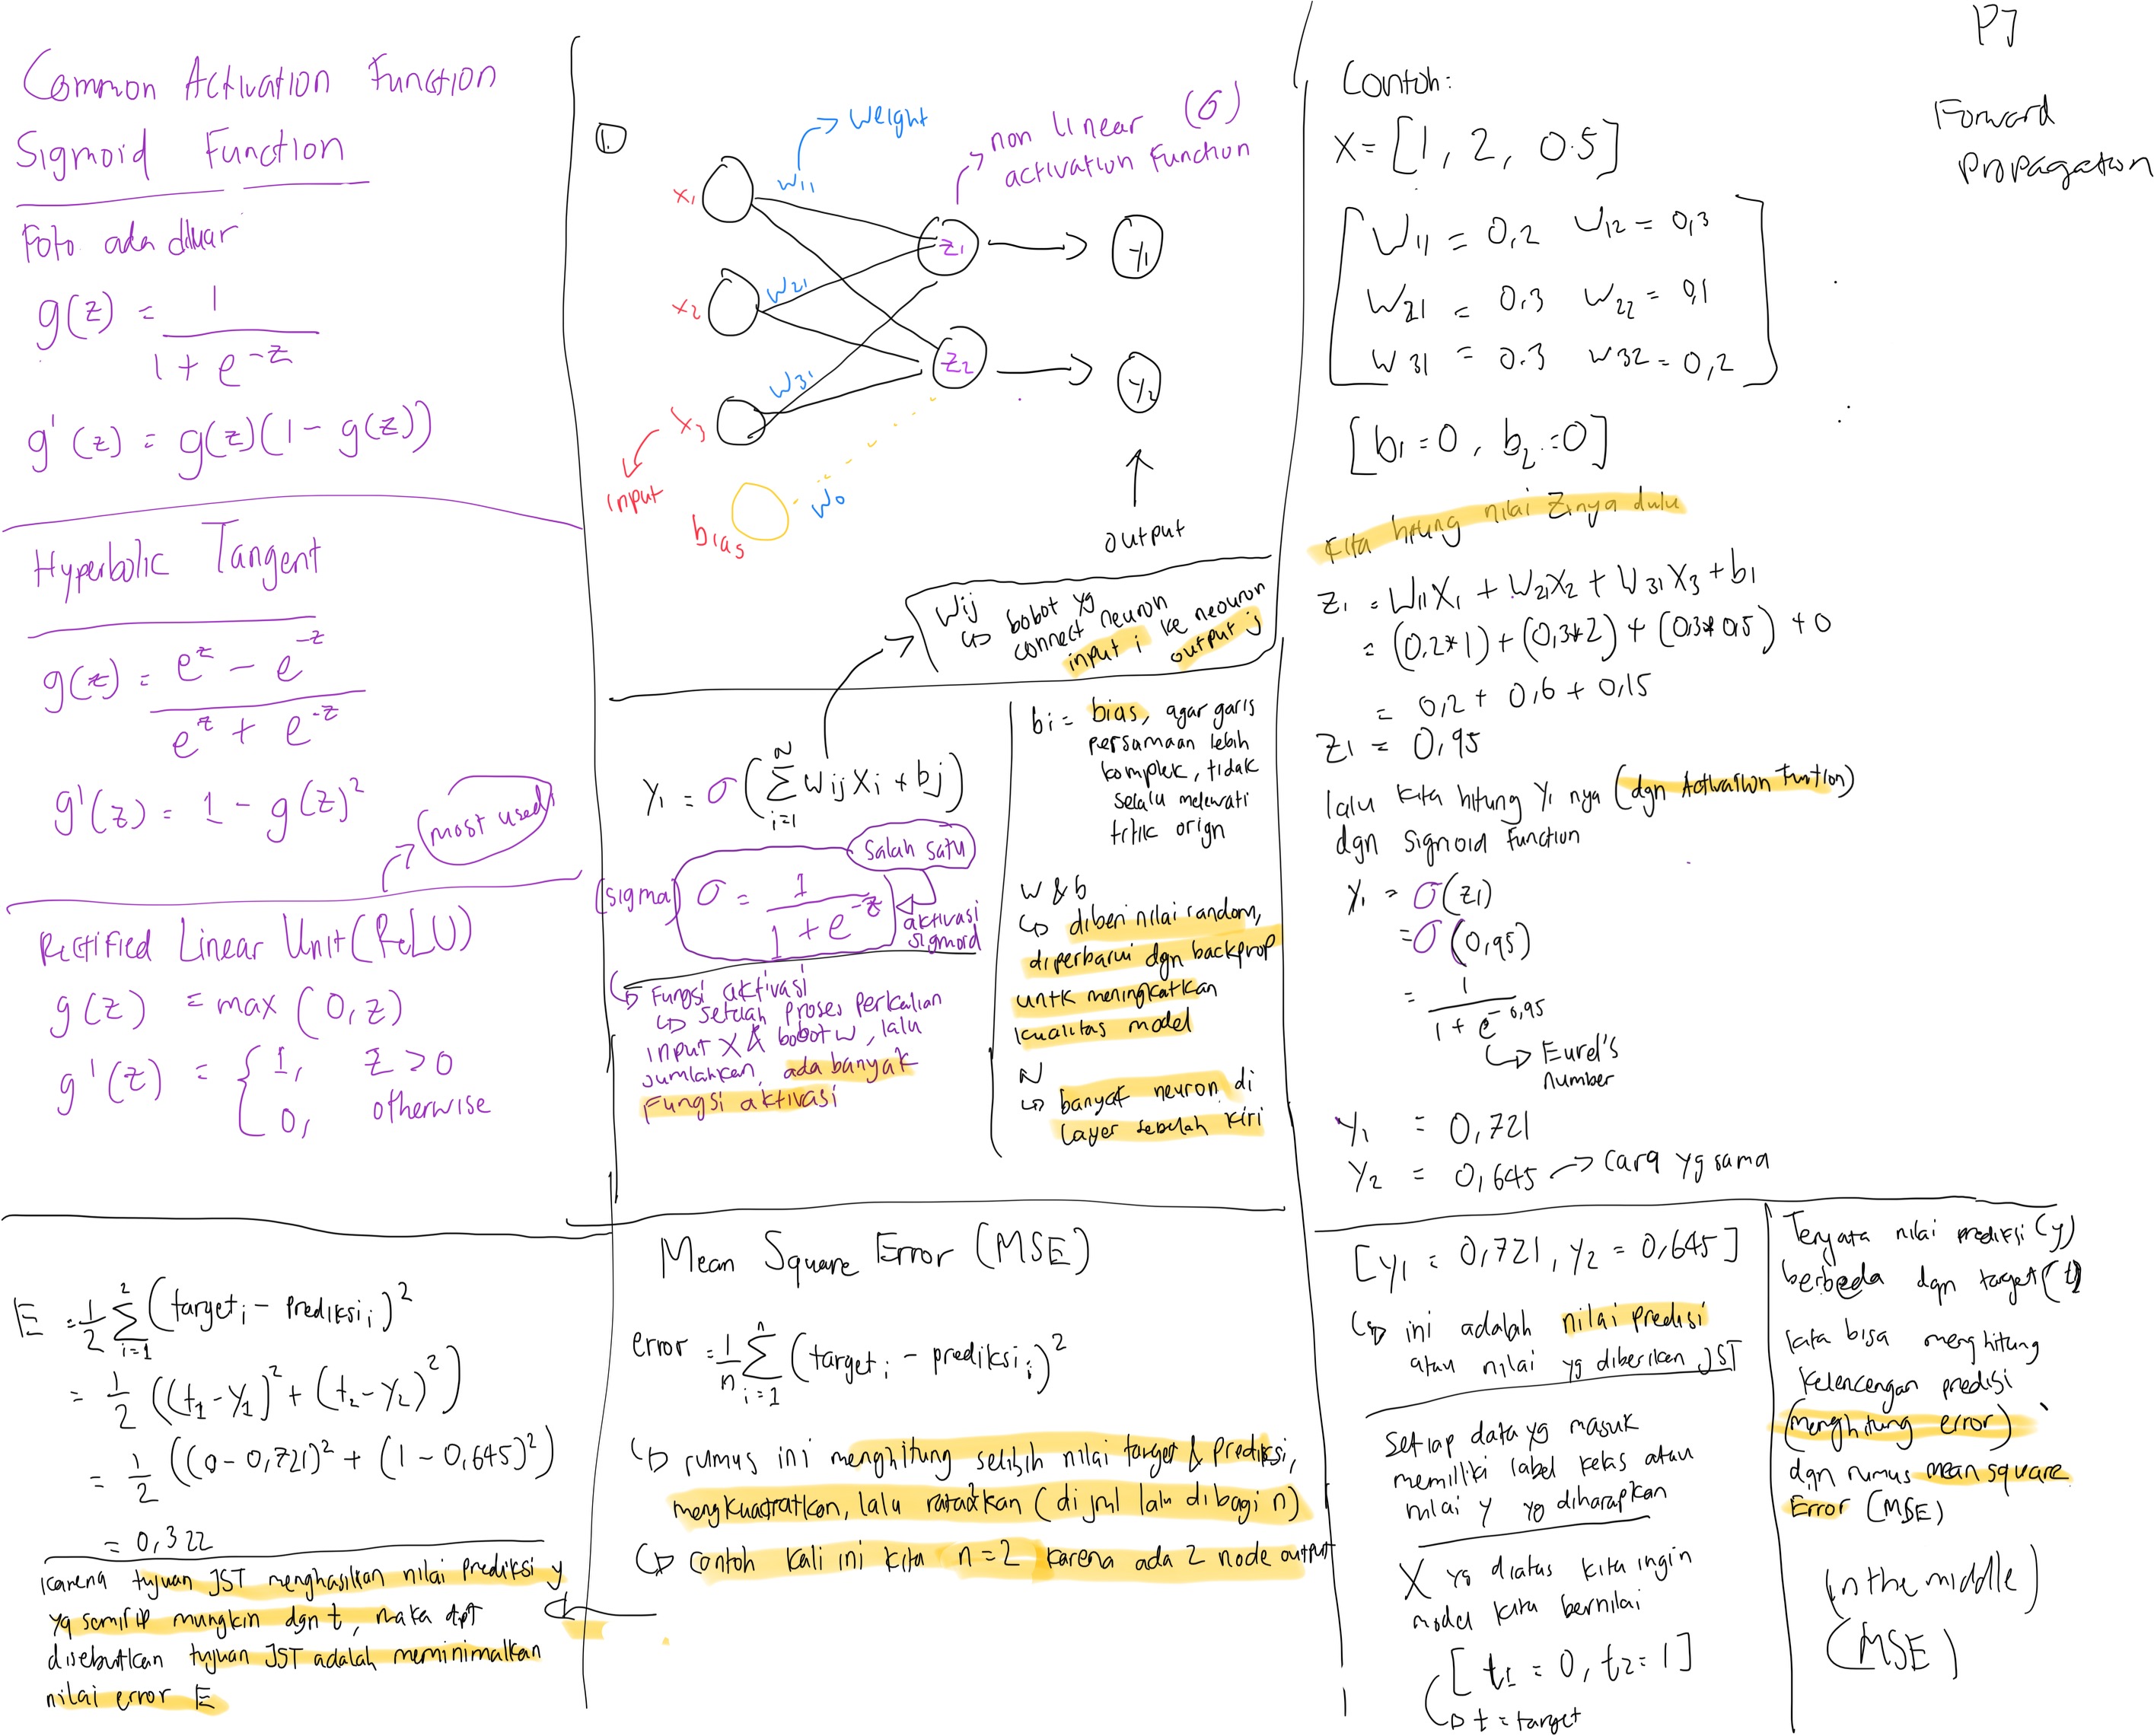 Common Activation Function
Sigmoid Function
Foto ada diluar
g(z) = 1 / (1 + e^-z)
g'(z) = g(z)(1 - g(z))
Hyperbolic Tangent
g(z) = (e^z - e^-z) / (e^z + e^-z)
g'(z) = 1 - g(z)^2
(most used)
Rectified Linear Unit (ReLU)
g(z) = max (0, z)
g'(z) = { 1, z > 0
0, otherwise
1.
weight
non linear (σ)
activation function
x1
w11
z1
y1
x2
w21
z2
y2
w31
x3
input
bias
w0
output
Wij
↳ bobot yg
connect neuron
input i ke neouron
output j
Y1 = σ ( N Σ i=1 Wij Xi + bj )
salah satu
(sigma) σ = 1 / (1 + e^-z)
aktivasi
sigmoid
↳ Fungsi aktivasi
↳ setelah proses perkalian
input X & bobot w, lalu
jumlahkan, ada banyak
Fungsi aktivasi
bi = bias, agar garis
persamaan lebih
komplek, tidak
selalu melewati
titik orign
w & b
↳ diberi nilai random,
diperbarui dgn backprop
untk meningkatkan
kualitas model
N
↳ banyak neuron di
layer sebelah kiri
PJ
Forward
Propagation
Contoh:
X = [1, 2, 0.5]
W11 = 0,2 W12 = 0,3
W21 = 0,3 W22 = 0,1
W31 = 0.3 W32 = 0,2
[b1 = 0, b2 = 0]
Kita hitung nilai Z1nya dulu
Z1 = W11X1 + W21X2 + W31X3 + b1
= (0,2*1) + (0,3*2) + (0,3*0,5) + 0
= 0,2 + 0,6 + 0,15
Z1 = 0,95
lalu kita hitung Y1 nya (dgn Activation Function)
dgn Sigmoid Function
Y1 = σ(z1)
= σ(0,95)
= 1 / (1 + e^-0,95)
↳ Eurel's
number
Y1 = 0,721
Y2 = 0,645 → Cara yg sama
E = 1/2 2 Σ i=1 (target i - prediksi i)^2
= 1/2 ((t1 - Y1)^2 + (t2 - Y2)^2)
= 1/2 ((0 - 0,721)^2 + (1 - 0,645)^2)
= 0,322
karena tujuan JST menghasilkan nilai prediksi y
yg semirip mungkin dgn t, maka dpt
disebutkan tujuan JST adalah meminimalkan
nilai error E
Mean Square Error (MSE)
error = 1/n n Σ i=1 (target i - prediksi i)^2
↳ rumus ini menghitung selisih nilai target & prediksi,
mengkuadratkan, lalu (di jml lalu dibagi n)
↳ contoh kali ini kita n=2 karena ada 2 node output
[y1 = 0,721, y2 = 0,645]
↳ ini adalah nilai predisi
atau nilai yg diberikan JST
Setiap data yg masuk
memiliki label kelas atau
nilai y yg diharapkan
X yg diatas kita ingin
model kita bernilai
[t1 = 0, t2 = 1]
↳ t = target
Teryata nilai prediksi (y)
berbeda dgn target (t)
kita bisa menghitung
kelencengan predisi
(menghitung error)
dgn rumus mean square
Error (MSE)
(in the middle)
(MSE)